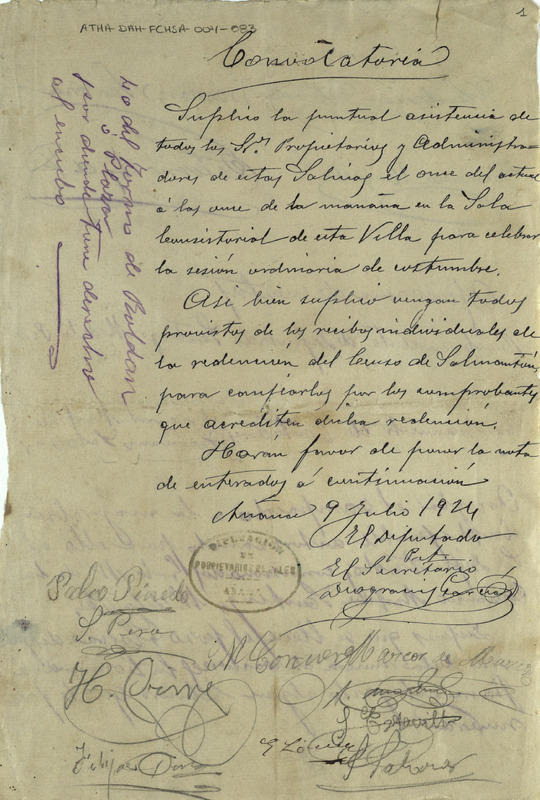 1
ATHA-DAH-FCHSA-004-083
Convocatoria
Suplico la puntual asistencia de
todos los Srs Propietarios y Administra-
dores de estas Salinas el once del actual
á las once de la mañana en la Sala
Consistorial de esta Villa para celebrar
la sesión ordinaria de costumbre.
Asi bien suplico vengan todos
provistos de los recibos individuales de
la redención del Censo de Salmantón,
para canjearlos por los comprobantes
que acrediten dicha redención.
Harán favor de poner la nota
de enterados á continuación
Añana 9 Julio 1924
El Diputado
El Secretario
Deogracias García
DIPUTACION
DE
PROPIETARIOS
AÑANA
Pablo Pinedo
S Pero
H.
E López
lo del turno de Roldan
ó Plaza
por donde tiene derecho
al encubo